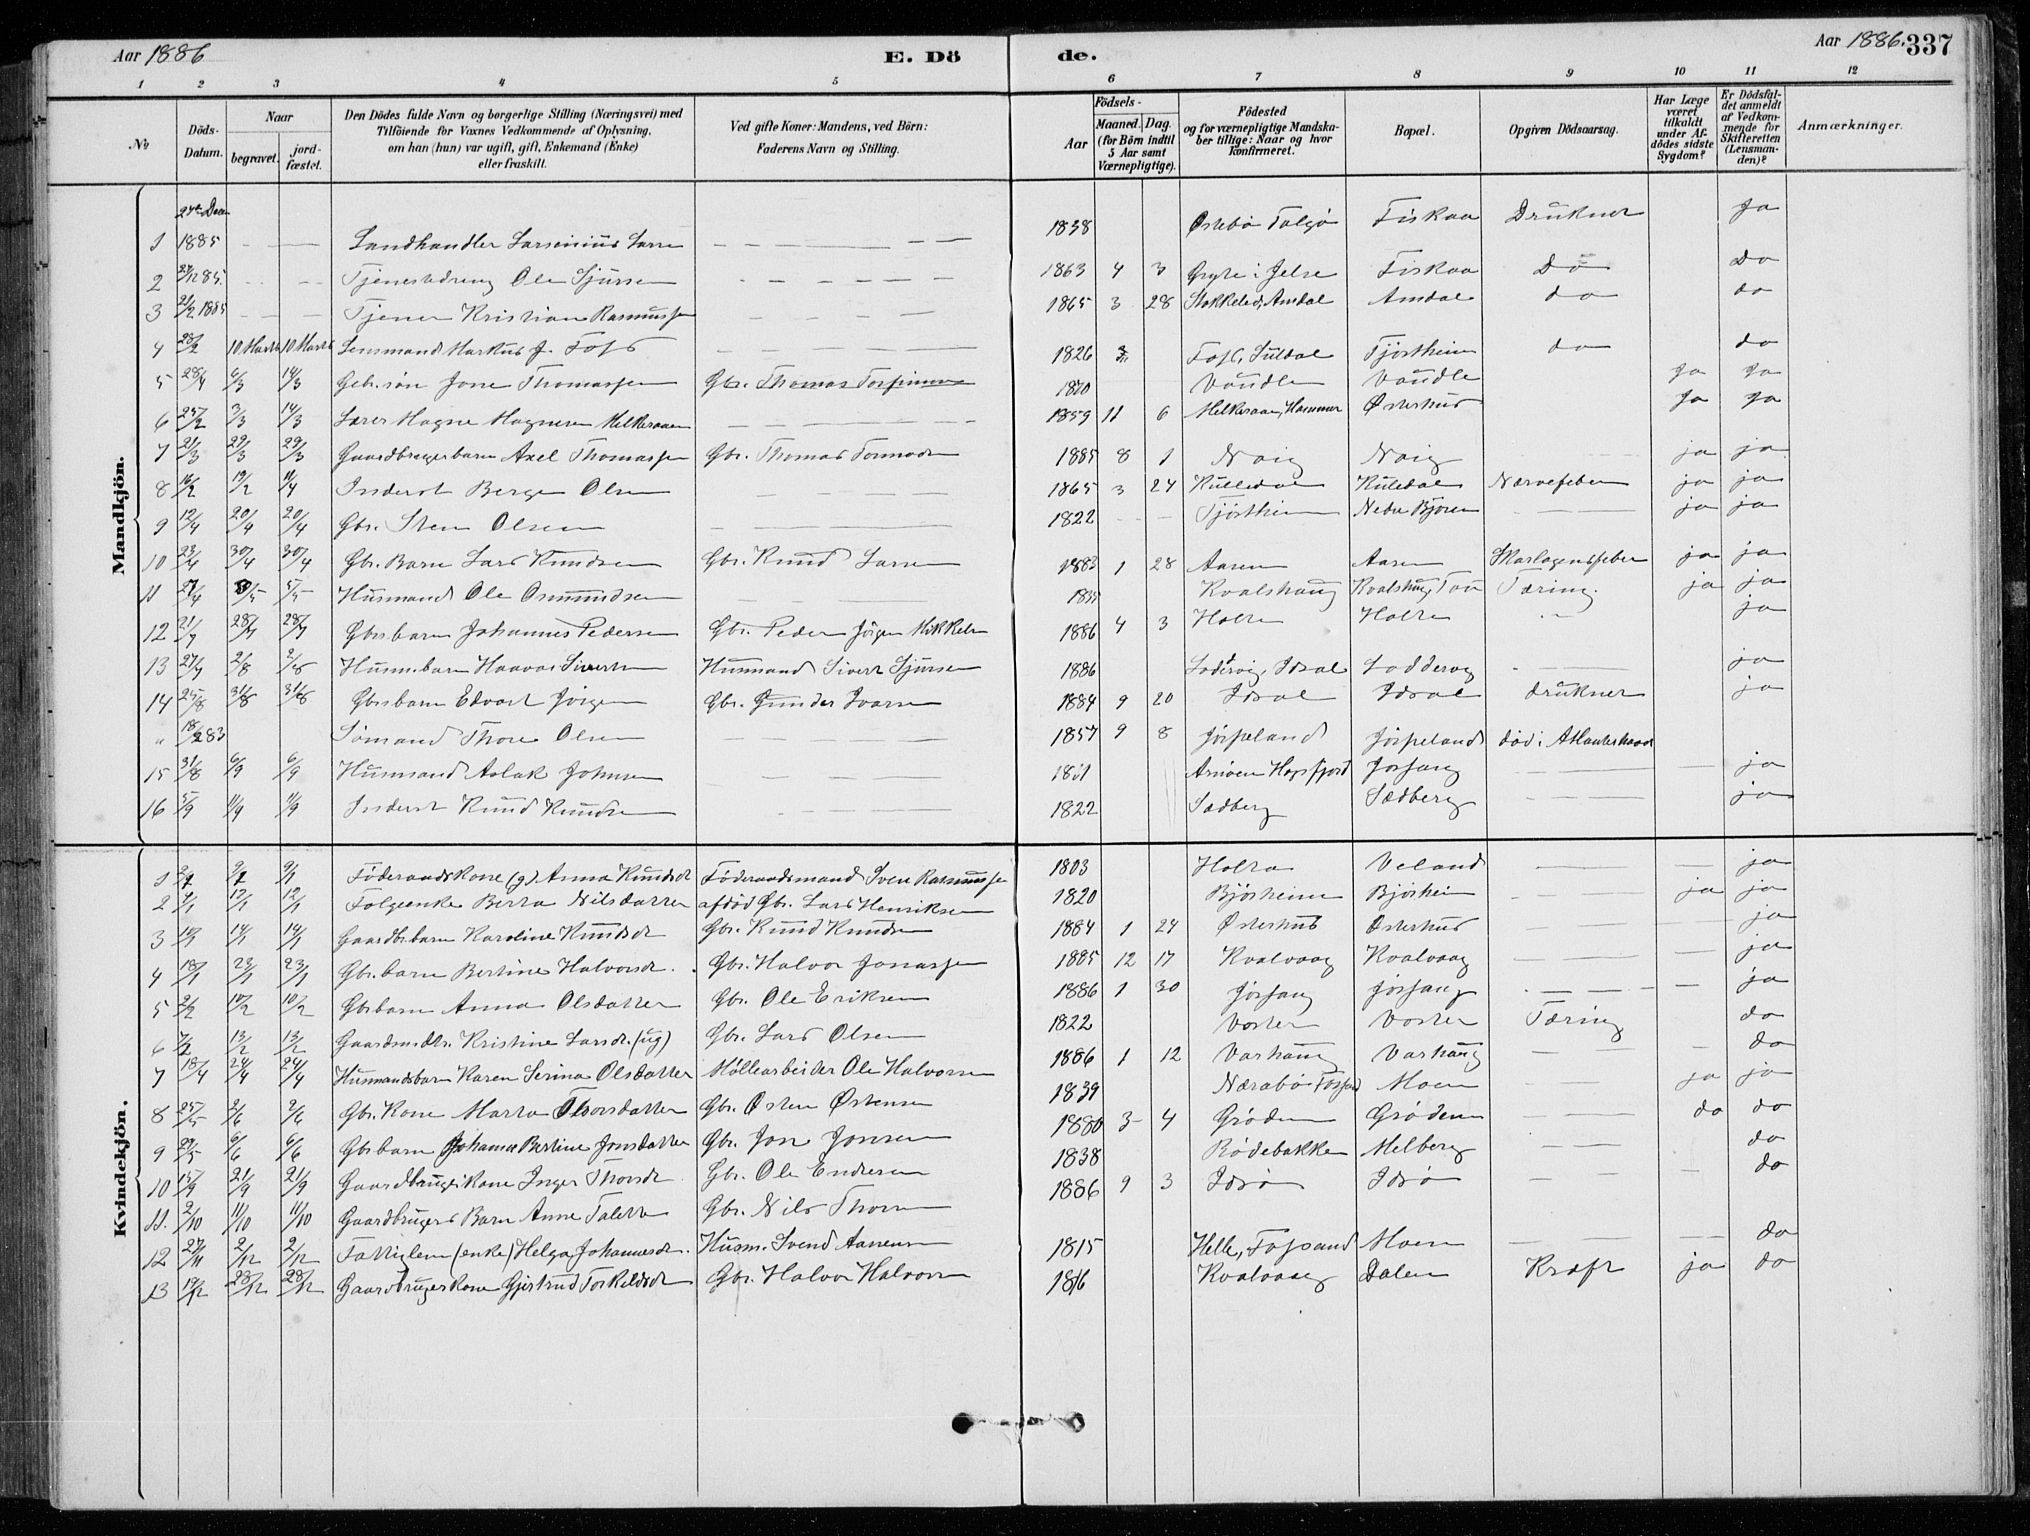 Aar 1886 E. Dö de. Aar 1886. 337
1 2 3 4 5 6 7 8 9 10 11 12
No
Döds-Datum.
Naar
begravet.
jord-fæstet.
Den Dödes fulde Navn og borgerlige Stilling (Næringsvei) med
Tilföiende for Voxnes Vedkommende af Oplysning,
om han (hun) var ugift, gift, Enkemand (Enke)
eller fraskilt.
Ved gifte Koner: Mandens, ved Börn:
Faderens Navn og Stilling.
Födsels-
Aar
Maaned. Dag.
(for Börn indtil
5 Aar samt
Værnepligtige).
Födested
og for værnepligtige Mandska-
ber tillige: Naar og hvor
konfirmeret.
Bopæl.
Opgiven Dödsaarsag.
Har Læge
været
tilkaldt
under Af-
dödes sidste
Sygdom?
Er Dödsfal-
det anmeldt
af Vedkom-
mende for
Skifteretten
(Lensman-
den)?
Anmærkninger.
Mandkjön.
1 27de Decbr 1885 — — Landhandler Larsinius Larsen — — 1838 Østebø Talgø Fiskaa Druknet Ja
2 27/12 85. — — Tjenestedreng Ole Sjursen — — 1863 4 3 Gryte i Jelse Fiskaa Do Do
3 21/2 1885 — — Tjener Kristian Rasmussen — — 1865 3 28 Stokkeled, Amdal Amdal do do
4 28/2 10 Marts 10 Marts Lensmand Markus J. Foss — — 1826 Foss, Suldal Tjöstheim do do
5 28/4 6/3 14/3 Gbr. søn Jone Thomassen Gbr. Thomas Torfinnsen 1870 Voudle Voudle Ja Ja
6 25/2 3/3 14/3 Lærer Magne Magnesen Melkeraaen — — 1859 11 6 Melkeraaen, Hammer Østerhus Ja Ja
7 21/3 29/3 29/3 Gaardbrugerbarn Axel Thomassen Gbr. Thomas Tormodsen 1885 8 1 Naig Naig ja ja
8 16/2 19/2 11/4 Inderst Berge Olsen — — 1865 3 24 Kulledal Kuledal Nervefeber ja ja
9 12/4 20/4 20/4 Gbr. Sten Olsen — — 1822 — — Tjöstheim Nedre Bjøren — — ja ja
10 23/4 30/4 30/4 Gbr. Barn Lars Knudsen Gbr. Knud Larsen 1883 1 28 Aasen Aasen Skarlagensfeber ja ja
11 27/4 5/5 5/5 Husmand Ole Osmundsen — — Kvalshaug Kvalshaug, Tau Tæring. ja ja
12 21/7 28/7 28/7 Gbrs barn Johannes Pedersen Gbr. Peder Jörgen Mikkelsen 1886 4 3 Holta Holta ja
13 27/7 2/8 2/8 Husm.barn Haavar Sivertsen Husmand Sivert Sjursen 1886 Lodervig, Idsal Loddervig — — ja
14 25/8 31/8 31/8 Gbrs barn Edvart Jörgen Gbr. Gunder Ivarsen 1884 9 20 Idsal Idsal druknet ja
" 18/2 83 Sømand Thore Olsen — — 1857 9 8 Jörpeland Jörpeland død i Atlanterhavet
15 31/8 6/9 6/9 Husmand Aslak Johnsen — — Jösfang — — ja
16 5/9 11/9 11/9 Inderst Knud Knudsen — — 1822 Sædberg Sædberg — — ja
Kvindekjön.
1 9/1 9/1 Föderaadskone (g) Anna Knudsdt Föderaadsmand Sven Rasmussen 1803 Holta Veland — — ja
2 4/1 12/1 12/1 Folgeenke Berta Nilsdatter afdöd Gbr. Lars Henriksen 1820 Bjösheim Bjösheim — ja ja
3 14/1 14/1 Gaardbr.barn Karoline Knudsdt Gbr. Knud Knudsen 1884 1 24 Østerhus Østerhus — — ja
4 18/1 23/1 23/1 Gbr. barn Bertine Halvorsdt. Gbr. Halvor Jonassen 1885 12 17 Kvalvaag Kvalvaag — — ja
5 2/2 10/2 10/2 Gbrs barn Anna Olsdatter Gbr. Ole Eriksen 1886 1 30 Jösfang Jösfang — — ja
6 7/2 13/2 13/2 Gaardmdtr. Kristine Larsdt. (ug) Gbr. Lars Olsen 1822 Voster Voster Tæring do
7 18/4 24/4 24/4 Husmandsbarn Karen Serina Olsdatter Möllearbeider Ole Halvorsen 1886 1 12 Varhaug Varhaug — — do
8 25/5 2/6 2/6 Gbr. Kone Marta Thorsdatter Gbr. Østen Østensen 1839 Nærabø Fossan Moen — ja ja
9 29/5 6/6 6/6 Gbs barn Johanna Bertine Jonsdatter Gbr. Jon Jonsen 1880 3 4 Grödem Grödem — do do
10 15/9 21/9 21/9 Gaardbrugerkone Inger Thorsdt. Gbr. Ole Endresen 1838 Rödebakken Melberg — — do
11. 2/10 11/10 11/10 Gaardbrugers Barn Anne Taletta Gbr. Nils Thorsen 1886 9 3 Idsö Idsö — — do
12 27/11 2/12 2/12 Fattiglem (enke) Helga Johannesdt. Husm. Svend Aanensen 1815 Helle, Fossand Moen — — do
13 19/12 28/12 28/12 Gaardbrugerkone Gjertrud Torkeldsdt Gbr. Halvor Halvorsen 1816 Kvalvaag Dalen Kræft ja do